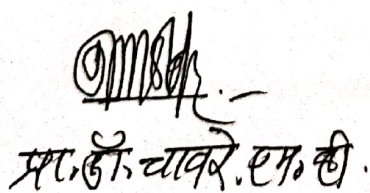 प्रा.डॉ.चावरे.एम.डी.